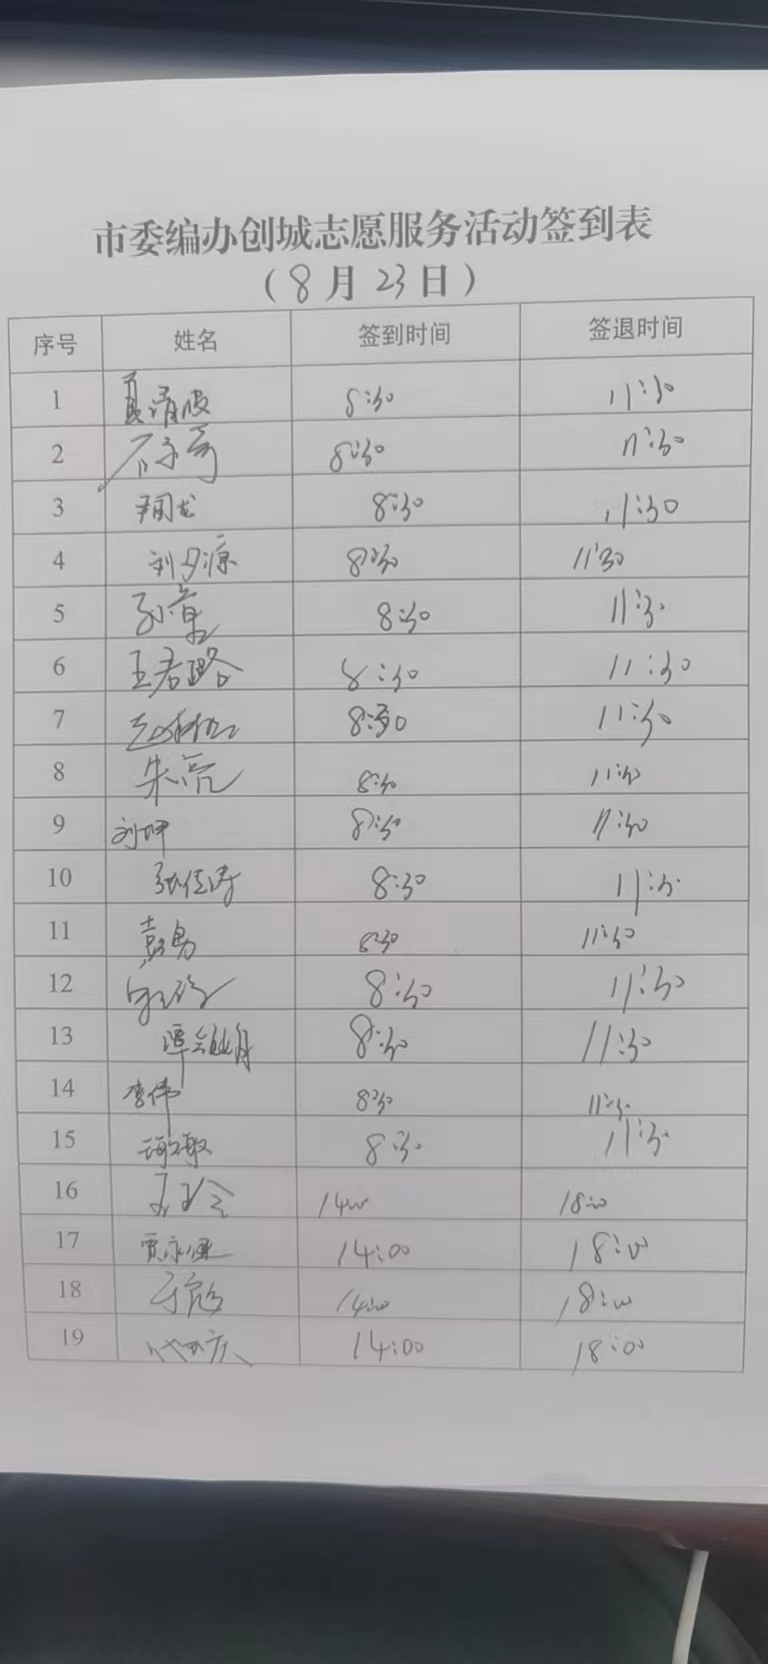 市委编办创城志愿服务活动签到表
(8月23日)
序号 姓名 签到时间 签退时间
1 夏清波 8:30 11:30
2 8:30 11:30
3 8:30 11:30
4 刘夕源 8:30 11:30
5 孙章 8:30 11:30
6 王君璐 8:30 11:30
7 8:30 11:30
8 朱亮 8:30 11:30
9 刘坤 8:30 11:30
10 张佳涛 8:30 11:30
11 彭勇 8:30 11:30
12 8:30 11:30
13 8:30 11:30
14 李伟 8:30 11:30
15 8:30 11:30
16 14:00 18:00
17 贾永健 14:00 18:00
18 14:00 18:00
19 14:00 18:00